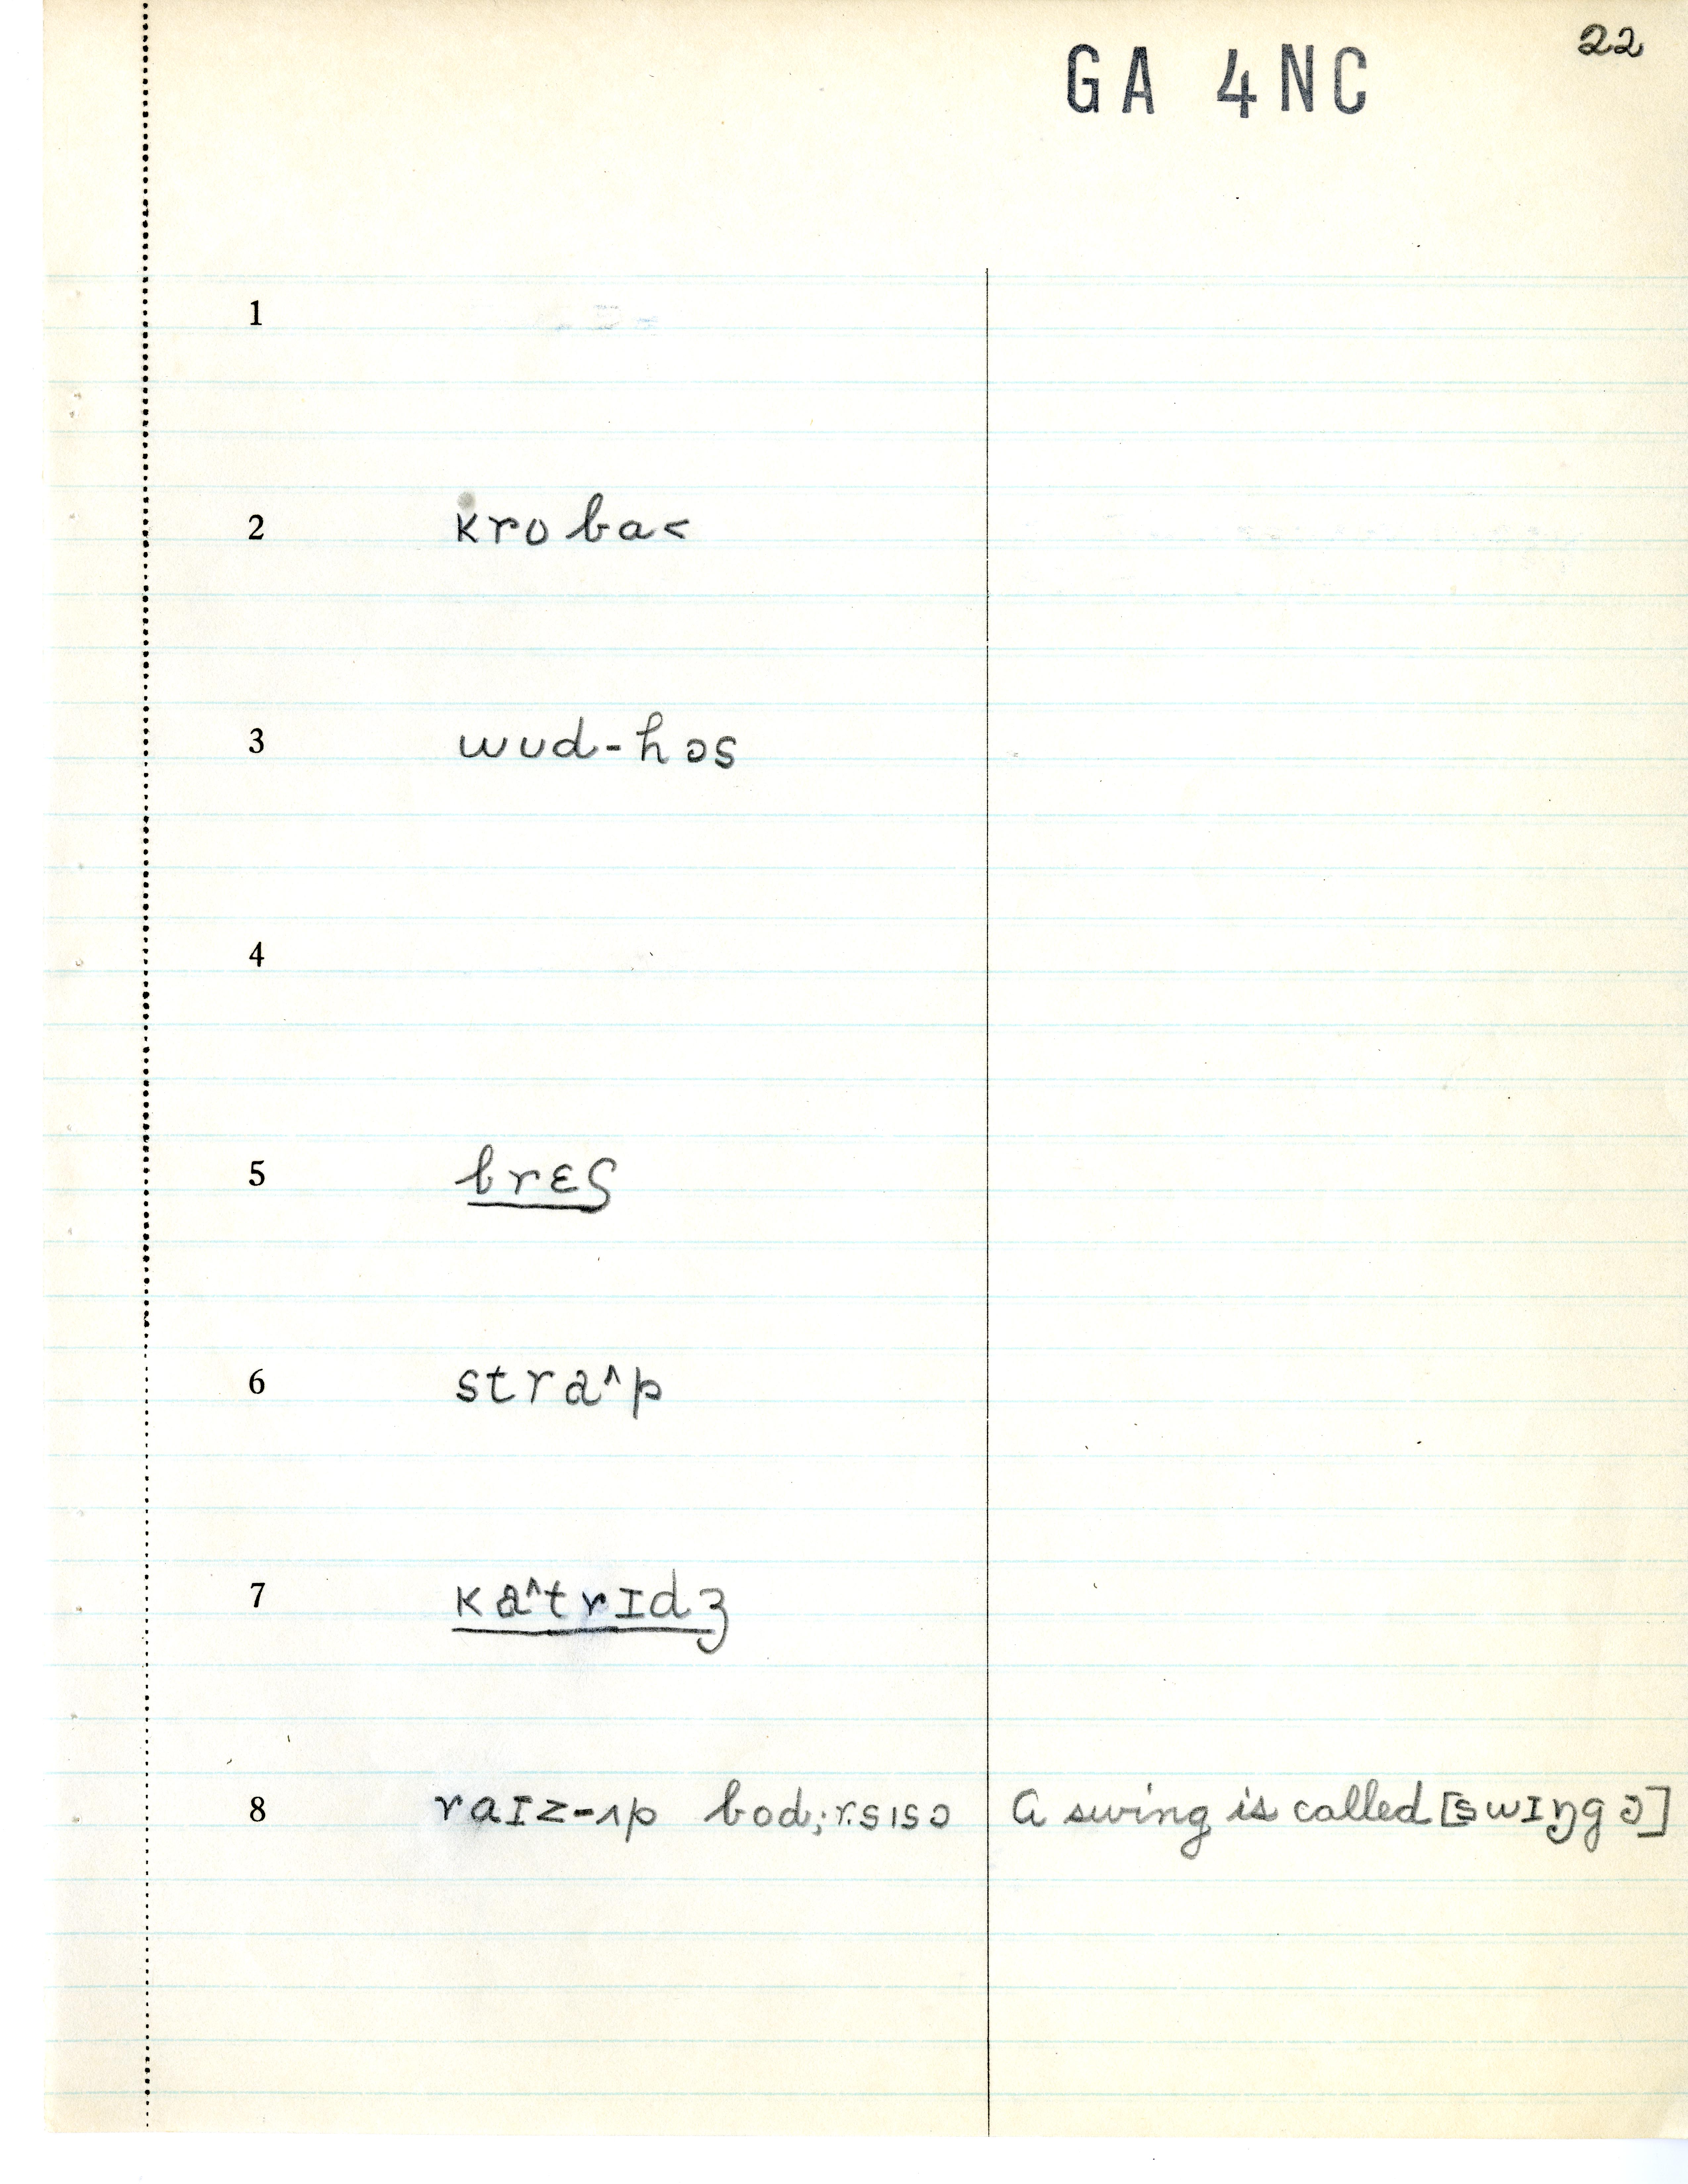 22
GA 4NC
1
2 kroba<
3 wud-hɔs
4
5 brɛʃ
6 stra^p
7 ka^trɪdʒ
8 raɪz-ʌp bod;r.sısɔ A swing is called [swɪŋgɔ]